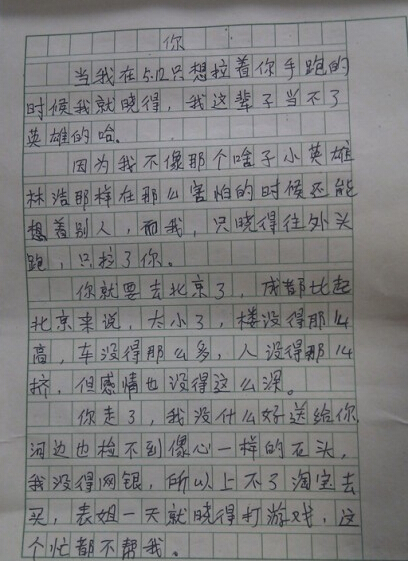 你
当我在5.12只想拉着你手跑的
时候我就晓得，我这辈子当不了
英雄的哈.
因为我不像那个啥子小英雄
林浩那样在那么害怕的时候还能
想着别人，而我，只晓得往外头
跑，只拉了你。
你就要去北京了，成都比起
北京来说，太小了，楼没得那么
高，车没得那么多，人没得那么
挤，但感情也没得这么深。
你走了，我没什么好送给你
河边也检不到像心一样的石头，
我没得网银，所以上不了淘宝去
买，表姐一天就晓得打游戏，这
个忙都不帮我。